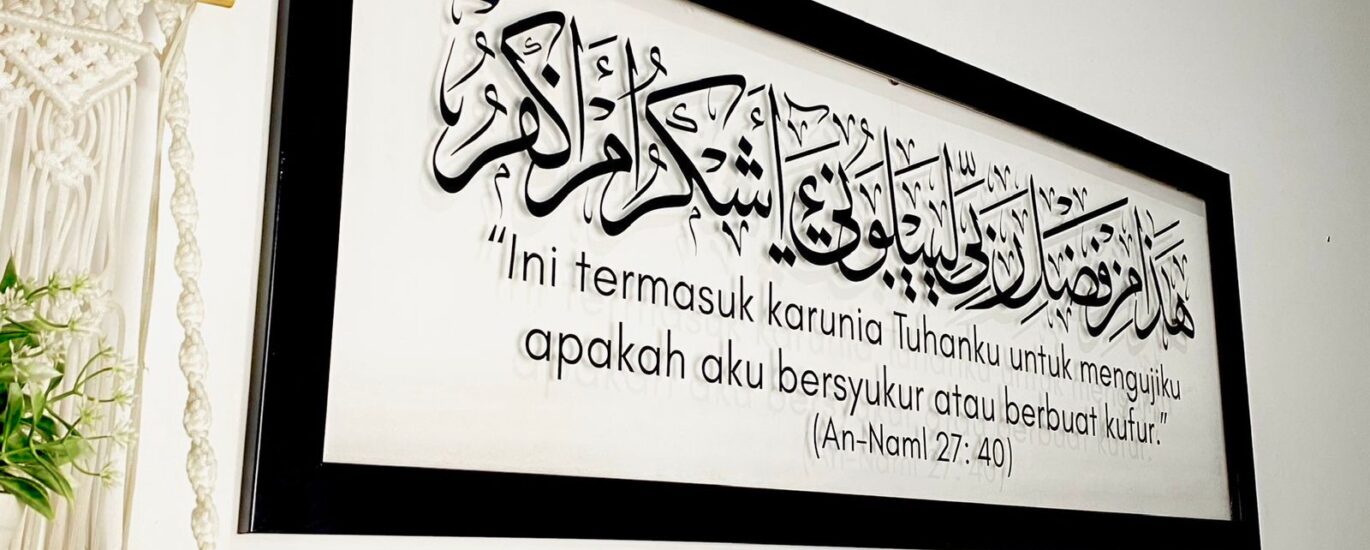 هَذَا مِنْ فَضْلِ رَبِّي لِيَبْلُوَنِي أَأَشْكُرُ أَمْ أَكْفُرُ
“Ini termasuk karunia Tuhanku untuk mengujiku
apakah aku bersyukur atau berbuat kufur.”
(An-Naml 27: 40)